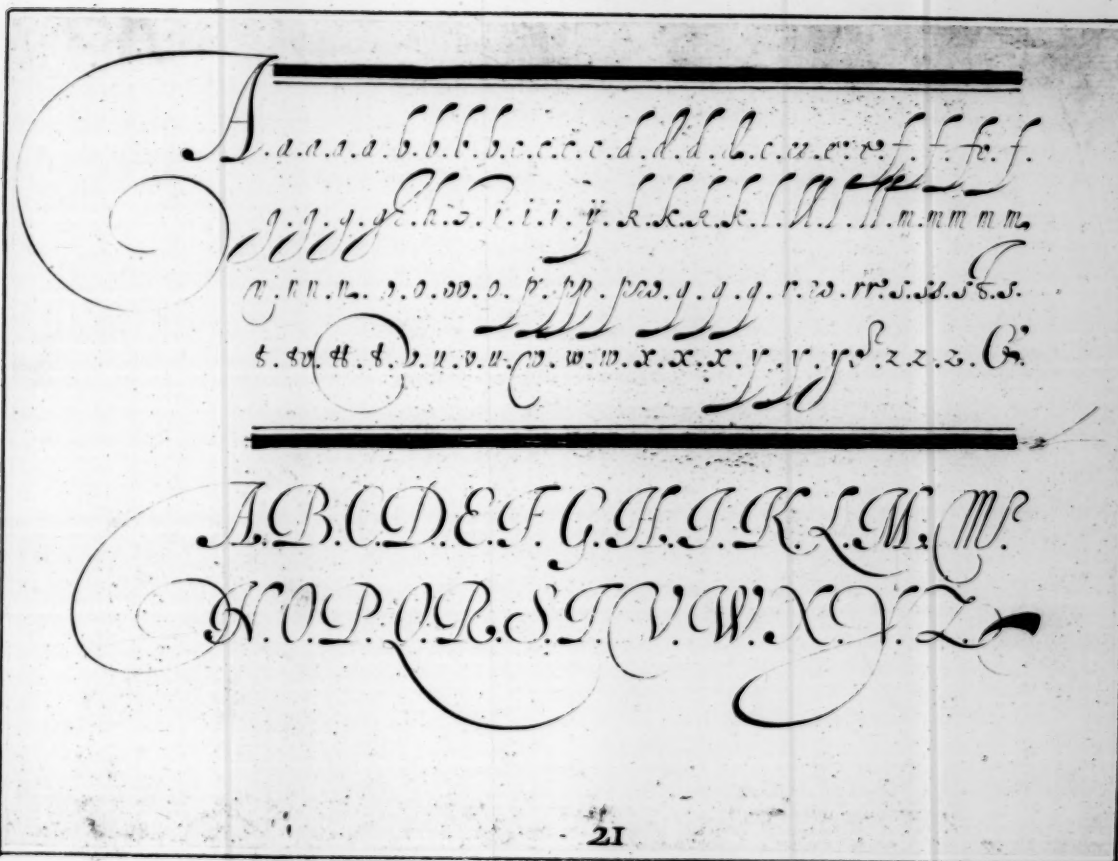 A.a.a.a.a.b.b.b.b.c.c.c.c.d.d.d.d.e.e.e.e.f.f.ff.f.
g.g.g.g.h.h.i.i.i.ij.k.k.k.k.l.ll.l.ll.m.m m m m
n.n n.n. o.o.o.o.p.pp.p.q.q.q.r.r.rr.s.ss.s.s.
t.t.tt.t.v.u.v.u.w.w.w.x.x.x.y.y.y.z.z.z.&.
A.B.C.D.E.F.G.H.I.K.L.M.M.
N.O.P.Q.R.S.T.V.W.X.Y.Z.
21